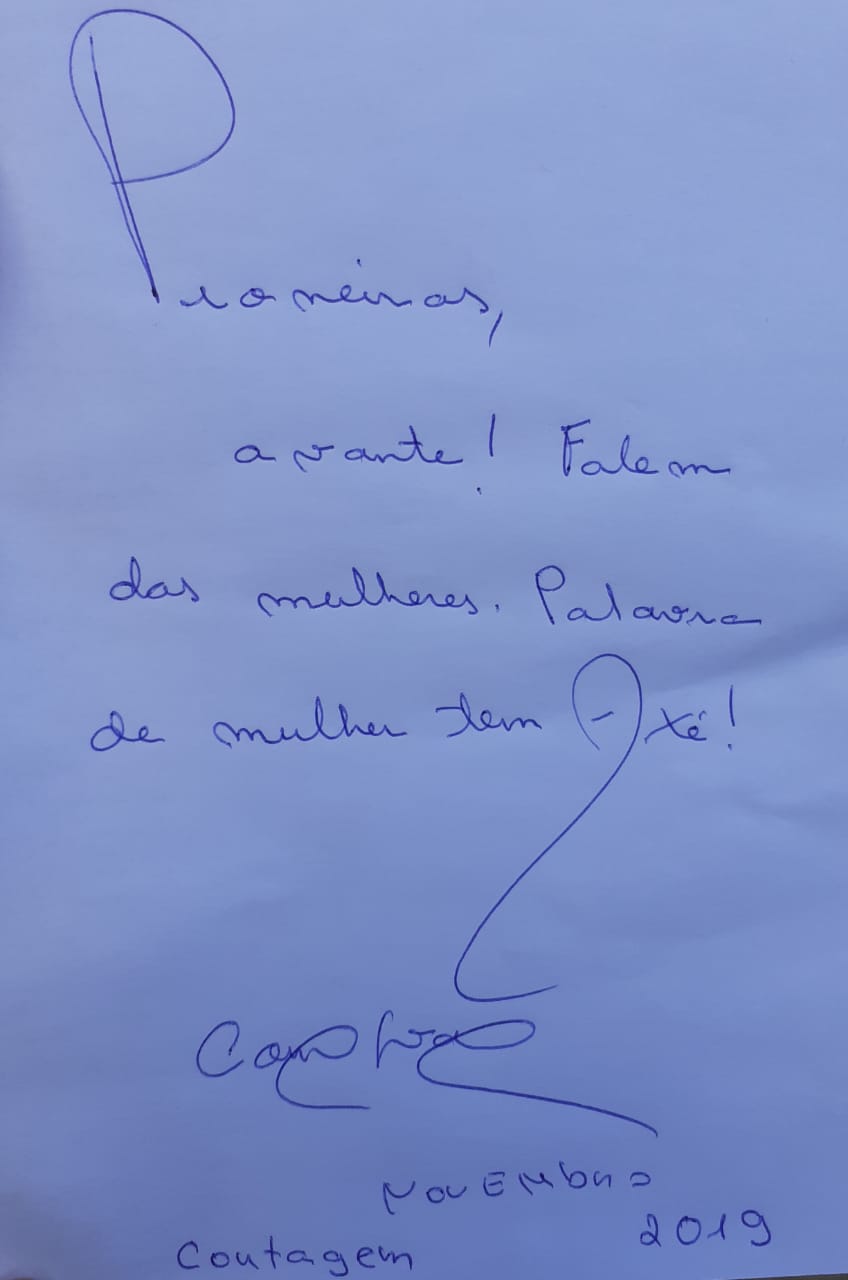 Pioneiras,
avante! Falem
das mulheres. Palavra
de mulher tem Axé!
Novembro
2019
Contagem